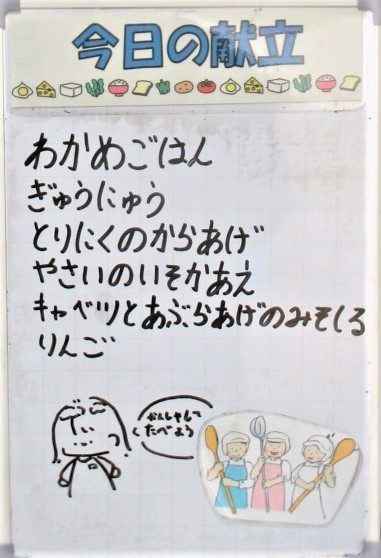 今日の献立
わかめごはん
ぎゅうにゅう
とりにくのからあげ
やさいのいそかあえ
キャベツとあぶらあげのみそしる
りんご
かんしゃして
たべよう